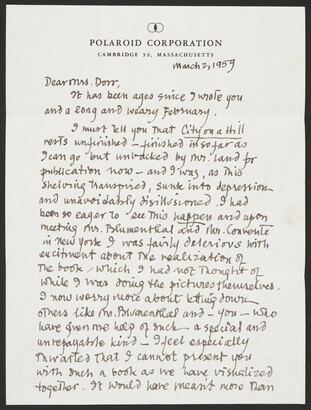 POLAROID CORPORATION
CAMBRIDGE 39, MASSACHUSETTS
March 2, 1959
Dear Mrs. Dorr,
It has been ages since I wrote you
and a long and weary February.
I must tell you that City on a Hill
rests unfinished – finished insofar as
I can go but unbacked by Mr. Land for
publication now – and I was, as this
shelving transpired, sunk into depression
and unavoidably disillusioned. I had
been so eager to see this happen and upon
meeting Mr. Blumenthal and Mr.
in New York I was fairly delerious with
excitment about the realization of
the book, which I had not thought of
while I was doing the pictures themselves.
I now worry more about letting down
others like Mr. Blumenthal and – you – who
have given me help of such a special and
unrepayable kind – I feel especially
thwarted that I cannot present you
with such a book as we have visualized
together. It would have meant more than